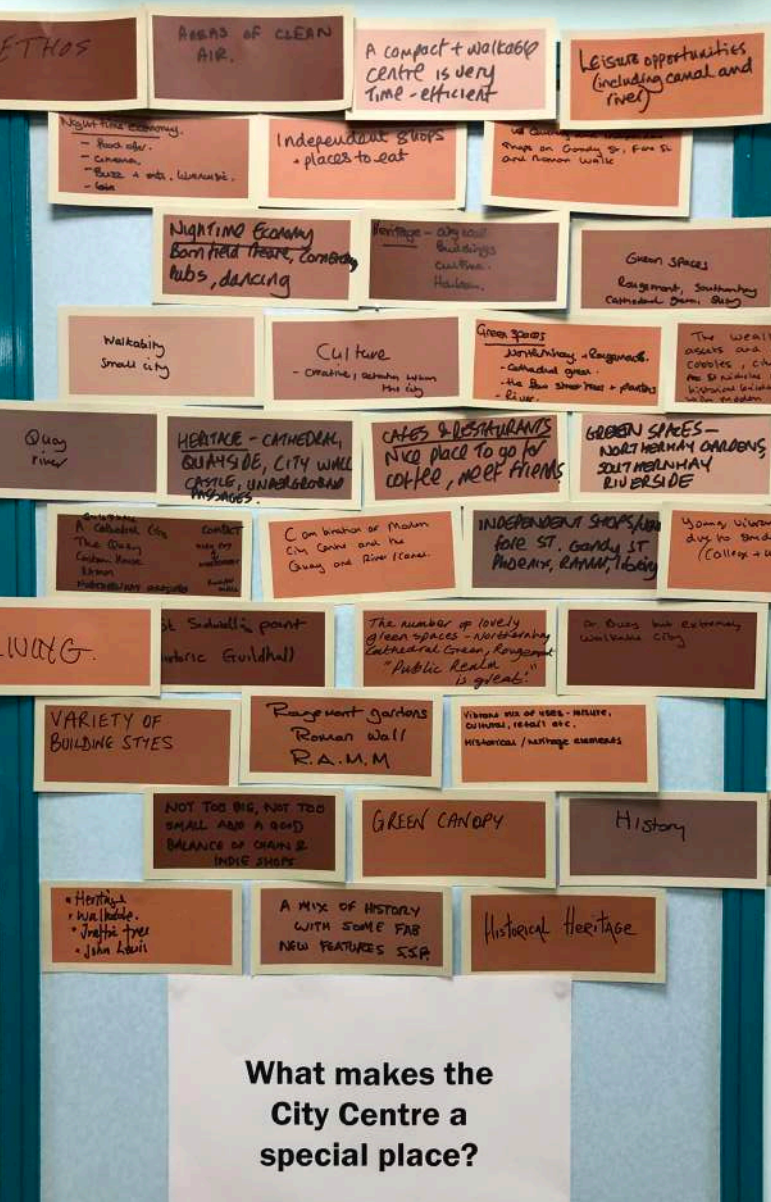 ETHOS
AREAS OF CLEAN
AIR.
A compact + walkable
centre is very
Time-efficient
Leisure opportunities
(including canal and
river)
Night time economy.
- Food offer.
- cinema.
Independent Shops
+ places to eat
Shops on Gandy St, Fore St
and Roman Walk
Nightime Economy
Barnfield Theatre,
Pubs, dancing
Heritage -
Buildings
Culture.
Green Spaces
Rougemont, Southernhay
Cathedral Green, Quay
Walkability
Small city
Culture
- Creative, within
the city
Green spaces
- Northernhay + Rougemont.
- Cathedral green.
- the few street trees + planters
- River.
The
assets and
cobbles,
Quay
river
HERITAGE - CATHEDRAL,
QUAYSIDE, CITY WALL
CASTLE, UNDERGROUND
PASSAGES.
CAFES & RESTAURANTS
Nice place to go for
coffee, meet friends
GREEN SPACES -
NORTHERHAY GARDENS,
SOUTHERNHAY
RIVERSIDE
A Cathedral City
The Quay
Custom House
COMPACT
Combination of Modern
City Centre and the
Quay and River/Canal.
INDEPENDENT SHOPS/
Fore ST. Gandy ST
PHOENIX, RAMM, library
Young
due to
(College +
St Sidwell's point
Historic Guildhall
The number of lovely
green spaces - Northernhay
Cathedral Green, Rougemont
"Public Realm
is great!"
Busy but extremely
walkable city
VARIETY OF
BUILDING STYES
Rougemont gardens
Roman Wall
R.A.M.M
Vibrant mix of uses - leisure,
cultural, retail etc.
Historical / heritage elements
NOT TOO BIG, NOT TOO
SMALL AND A GOOD
BALANCE OF CHAIN &
INDIE SHOPS
GREEN CANOPY
History
• Heritage
• Walkable.
• Traffic free
• John Lewis
A MIX OF HISTORY
WITH SOME FAB
NEW FEATURES S.S.P.
Historical Heritage
What makes the
City Centre a
special place?